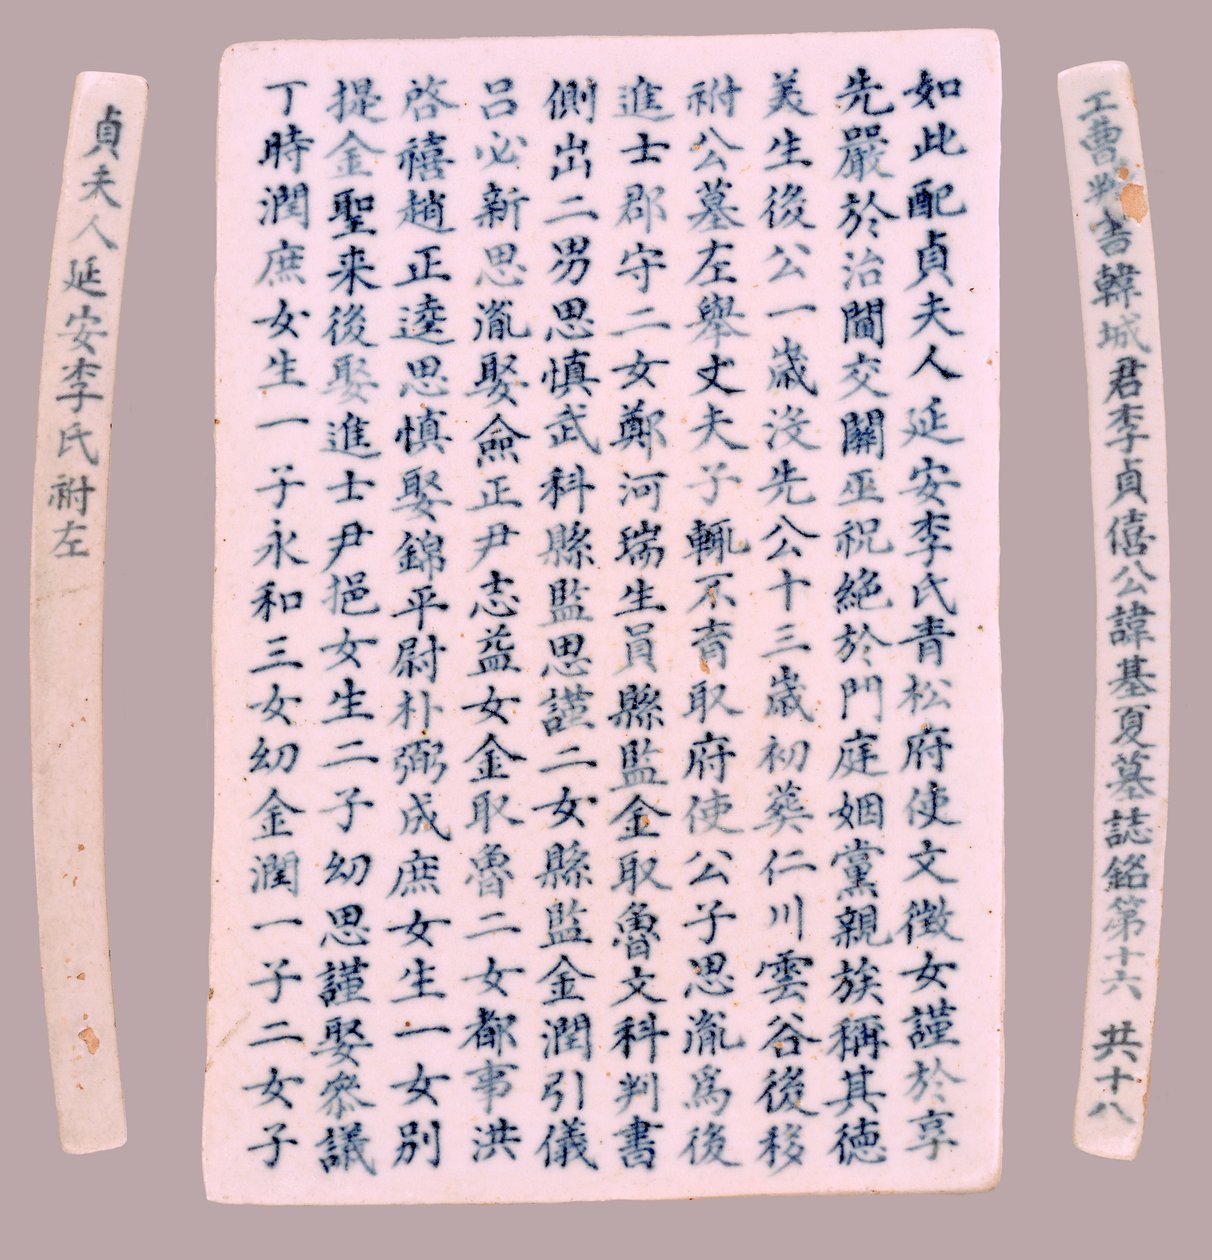 工曹判書韓城君李貞僖公諱基夏墓誌銘第十六 共十八
如此配貞夫人延安李氏青松府使文徵女謹於享
先嚴於治閫交關巫祝絶於門庭姻黨親族稱其德
美生後公一歲没先公十三歲初葬仁川雲谷後移
祔公墓左擧丈夫子輒不育取府使公子思胤爲後
進士郡守二女鄭河瑞生員縣監金取魯文科判書
側出二男思慎武科縣監思謹二女縣監金潤引儀
呂必新思胤娶僉正尹志益女金取魯二女都事洪
啓禧趙正逵思慎娶錦平尉朴弼成庶女生一女別
提金聖来後娶進士尹挹女生二子幼思謹娶參議
丁時潤庶女生一子永和三女幼金潤一子二女子
貞夫人延安李氏祔左